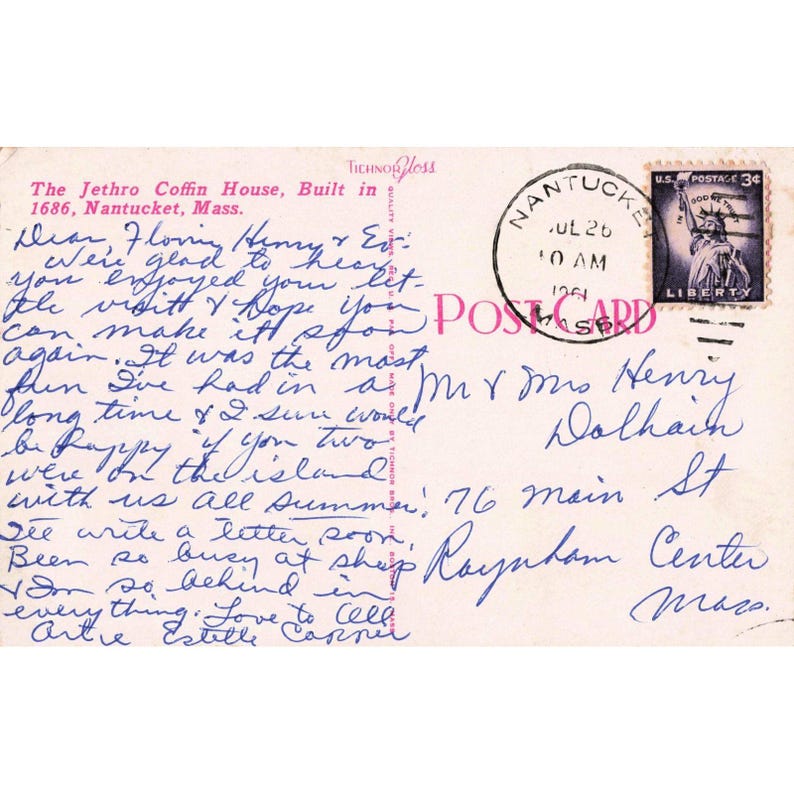 TICHNOR Gloss
The Jethro Coffin House, Built in
1686, Nantucket, Mass.
Dear Henry &
We're glad to hear
you enjoyed your lit-
tle visit & hope you
can make it soon
again. It was the most
fun I've had in a
long time & I sure would
be happy if you two
were on the island
with us all summer.
I'll write a letter soon.
Been so busy at shop
& I'm so behind in
everything. Love to All
Artie Estelle
QUALITY VIEWS, REG. U. S. PAT. OFF. MADE ONLY BY TICHNOR BROS. INC. BOSTON 15, MASS.
POST CARD
NANTUCKET
JUL 26
10 AM
1961
MASS
U.S. POSTAGE 3¢
IN GOD WE TRUST
LIBERTY
Mr & Mrs Henry
76 Main St
Raynham Center
Mass.